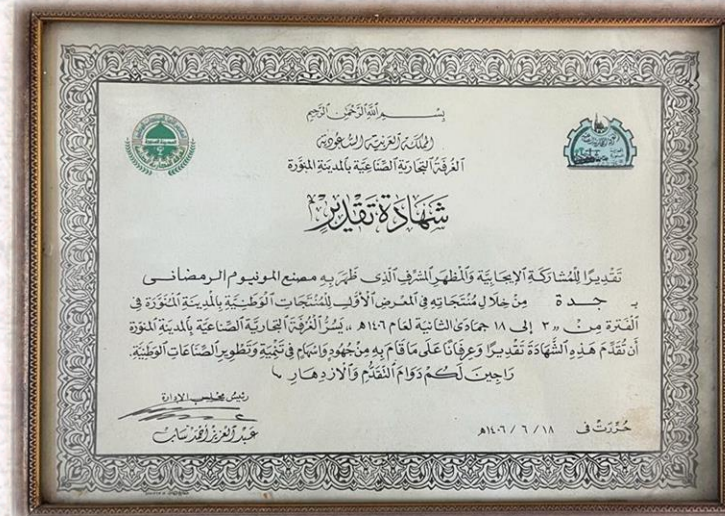 بسم الله الرحمن الرحيم
المملكة العربية السعودية
الغرفة التجارية الصناعية بالمدينة المنورة
شهادة تقدير
تقديرًا للمشاركة الإيجابية والمظهر المشرف الذي ظهر به مصنع المونيوم الرمضاني
بـ جدة من خلال منتجاته في المعرض الأول للمنتجات الوطنية بالمدينة المنورة في
الفترة من «٣ إلى ١٨ جمادى الثانية لعام ١٤٠٦هـ» يسر الغرفة التجارية الصناعية بالمدينة المنورة
أن تقدم هذه الشهادة تقديرًا وعرفانًا على ما قام به من جهود وإسهام في تنمية وتطوير الصناعات الوطنية.
راجين لكم دوام التقدم والازدهار
رئيس مجلس الإدارة
عبد العزيز أحمد ساب
حررت في ١٨ / ٦ / ١٤٠٦هـ